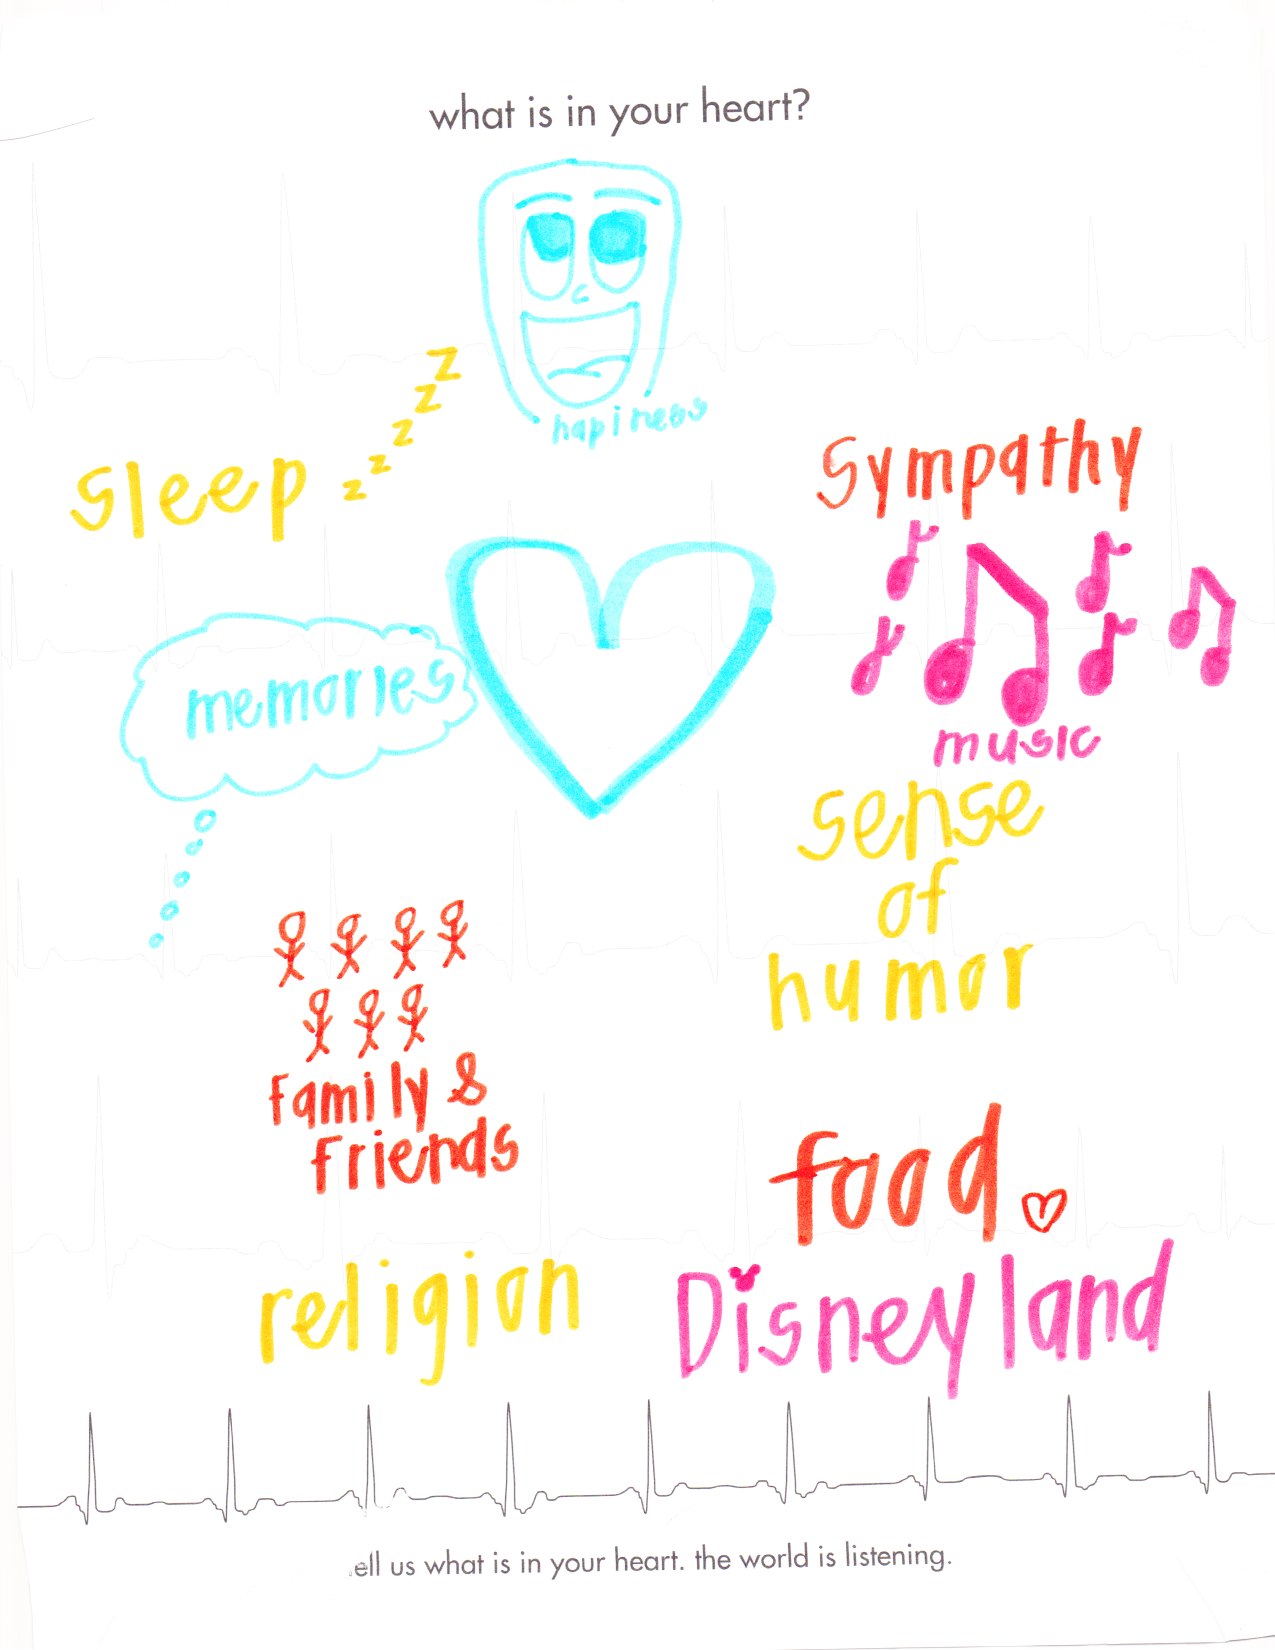 what is in your heart?
hapiness
z
z
z
z
z
sleep
Sympathy
memories
music
sense
of
humor
family &
friends
food
religion
Disneyland
ell us what is in your heart. the world is listening.